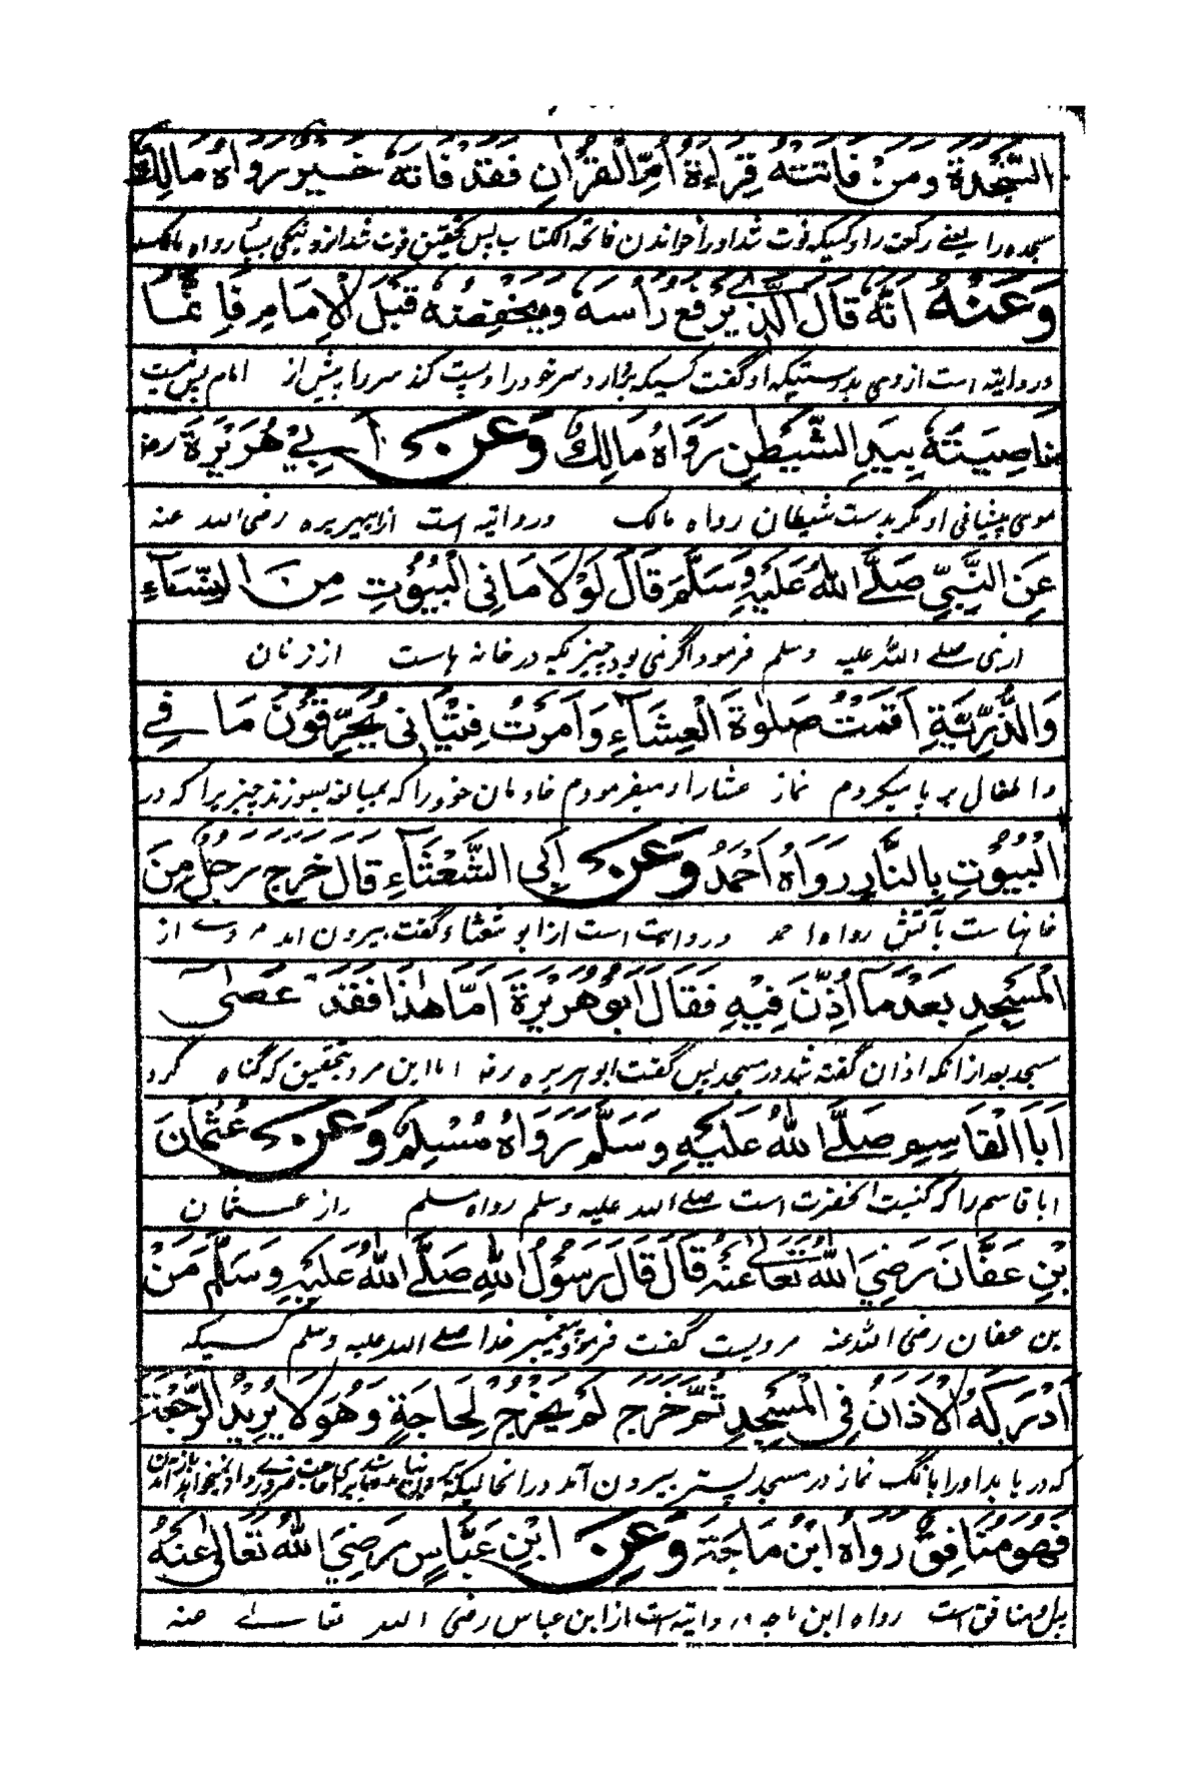 السَّجْدَةَ وَمَنْ فَاتَتْهُ قِرَاءَةُ أُمِّ الْقُرْآنِ فَقَدْ فَاتَهُ خَيْرٌ رَوَاهُ مَالِكٌ
سجده را یعنے رکعت را و کسیکه فوت شد او را خواندن فاتحه الکتاب پس تحقیق فوت شد ازو نیکی بسیار رواه مالک
وَعَنْهُ أَنَّهُ قَالَ الَّذِي يَرْفَعُ رَأْسَهُ وَيَخْفِضُهُ قَبْلَ الْإِمَامِ فَإِنَّمَا
و روایته است از وی بدرستیکه او گفت کسیکه بردارد سر خود را و پست کند سر را پیش از امام پس نیست
نَاصِيَتُهُ بِيَدِ الشَّيْطٰنِ رَوَاهُ مَالِكٌ وَعَنْ أَبِي هُرَيْرَةَ رض
موی پیشانی او مگر بدست شیطان رواه مالک و روایته است از ابیهریره رضی الله عنه
عَنِ النَّبِيِّ صَلَّى اللهُ عَلَيْهِ وَسَلَّمَ قَالَ لَوْلَا مَا فِي الْبُيُوْتِ مِنَ النِّسَاءِ
از نبی صلے الله علیه وسلم فرمود اگر نمی بود چیزیکه در خانه هاست از زنان
وَالذُّرِّيَّةِ أَقَمْتُ صَلٰوةَ الْعِشَاءِ وَأَمَرْتُ فِتْيَانِي يُحَرِّقُوْنَ مَا فِي
و اطفال بر پا میکردم نماز عشا را و میفرمودم خادمان خود را که بسوزند چیزیرا که در
الْبُيُوْتِ بِالنَّارِ رَوَاهُ أَحْمَدُ وَعَنْ أَبِي الشَّعْثَاءِ قَالَ خَرَجَ رَجُلٌ مِنَ
خانهاست بآتش رواه احمد و روایت است از ابو شعثاء گفت بیرون آمد مردے از
الْمَسْجِدِ بَعْدَ مَا أُذِّنَ فِيْهِ فَقَالَ أَبُو هُرَيْرَةَ أَمَّا هٰذَا فَقَدْ عَصٰى
مسجد بعد از آنکه اذان گفته شد در مسجد پس گفت ابو هریره رض اما این مرد بتحقیق که گناه کرد
أَبَا الْقَاسِمِ صَلَّى اللهُ عَلَيْهِ وَسَلَّمَ رَوَاهُ مُسْلِمٌ وَعَنْ عُثْمَانَ
ابا قاسم را که کنیت آنحضرت است صلے الله علیه وسلم رواه مسلم و از عثمان
بْنِ عَفَّانَ رَضِيَ اللهُ تَعَالٰى عَنْهُ قَالَ قَالَ رَسُوْلُ اللهِ صَلَّى اللهُ عَلَيْهِ وَسَلَّمَ مَنْ
بن عفان رضی الله عنه مرویست گفت فرمود پیغمبر خدا صلے الله علیه وسلم کسیکه
أَدْرَكَهُ الْأَذَانُ فِي الْمَسْجِدِ ثُمَّ خَرَجَ لَمْ يَخْرُجْ لِحَاجَةٍ وَهُوَ لَا يُرِيْدُ الرَّجْعَةَ
که دریابد او را بانگ نماز در مسجد پستر بیرون آمد در انحالیکه
فَهُوَ مُنَافِقٌ رَوَاهُ ابْنُ مَاجَةَ وَعَنِ ابْنِ عَبَّاسٍ رَضِيَ اللهُ تَعَالٰى عَنْهُ
پس او منافق است رواه ابن ماجه و روایته است از ابن عباس رضی الله تعالے عنه